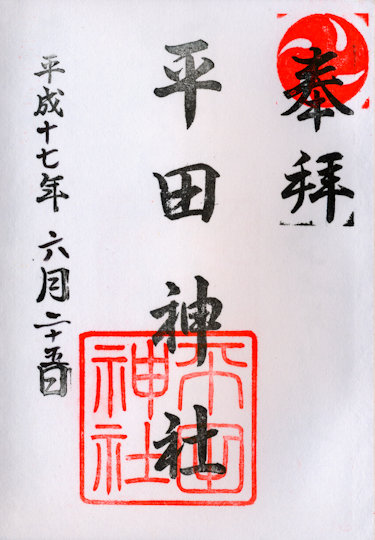 奉拝
平田神社
平成十七年 六月二十五日
平田
神社